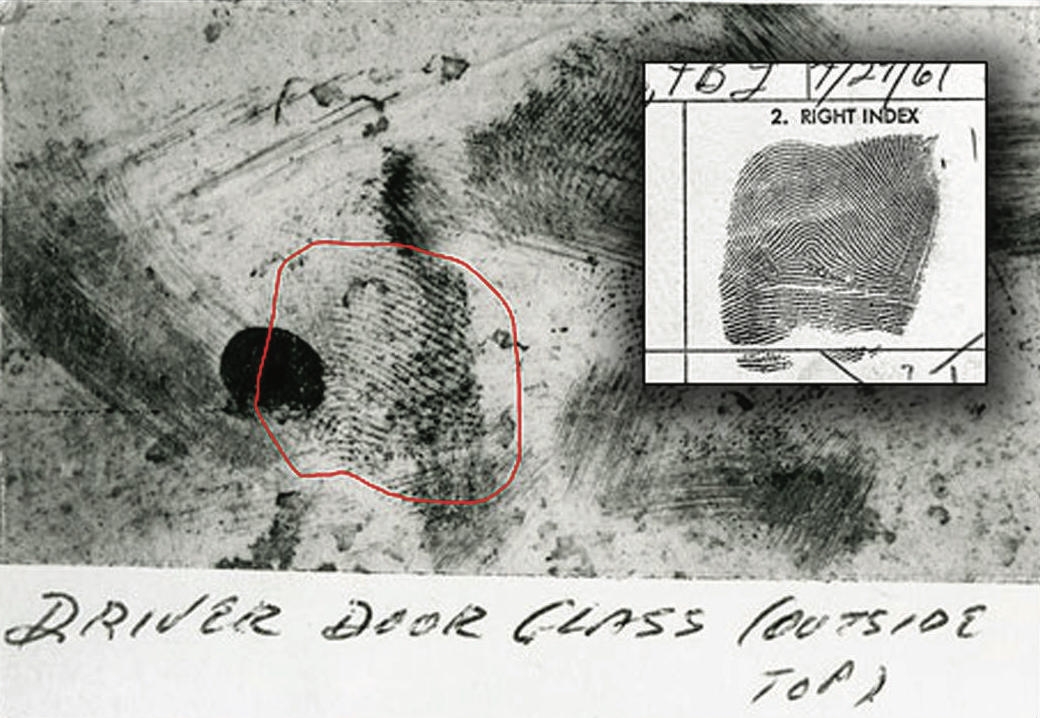 2. RIGHT INDEX
DRIVER DOOR GLASS (OUTSIDE
TOP)